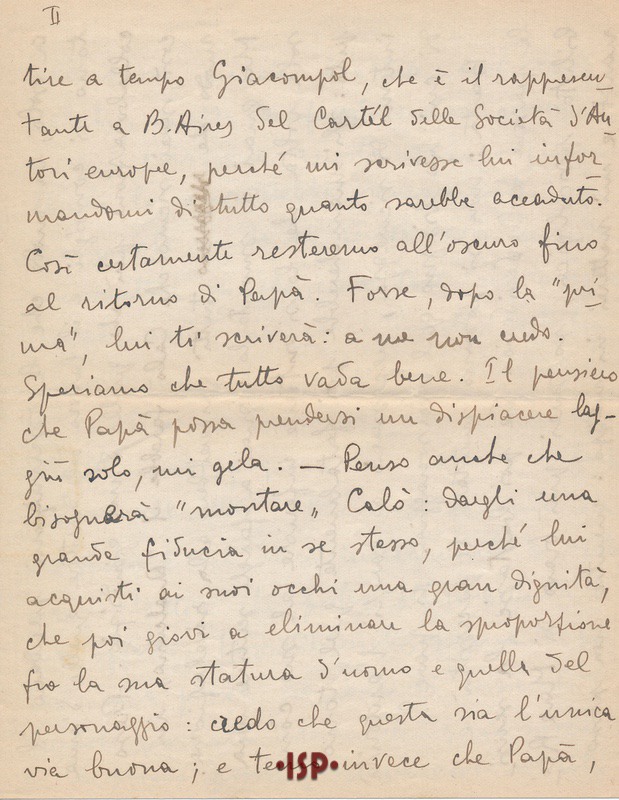 II
tire a tempo Giacompol, che è il rappresen-
tante a B. Aires del Cartél delle Società d'Au-
tori europee, perché mi scrivesse lui infor-
mandomi di tutto quanto sarebbe accaduto.
Così certamente resteremo all'oscuro fino
al ritorno di Papà. Forse, dopo la "pri-
ma", lui ti scriverà: a me non credo.
Speriamo che tutto vada bene. Il pensiero
che Papà possa prendersi un dispiacere lag-
giù solo, mi gela. — Penso anche che
bisognerà "montare„ Calò: dargli una
grande fiducia in se stesso, perché lui
acquisti ai suoi occhi una gran dignità,
che poi giovi a eliminare la sproporzione
fra la sua statura d'uomo e quella del
personaggio: credo che questa sia l'unica
via buona; e temo invece che Papà,
•ISP•